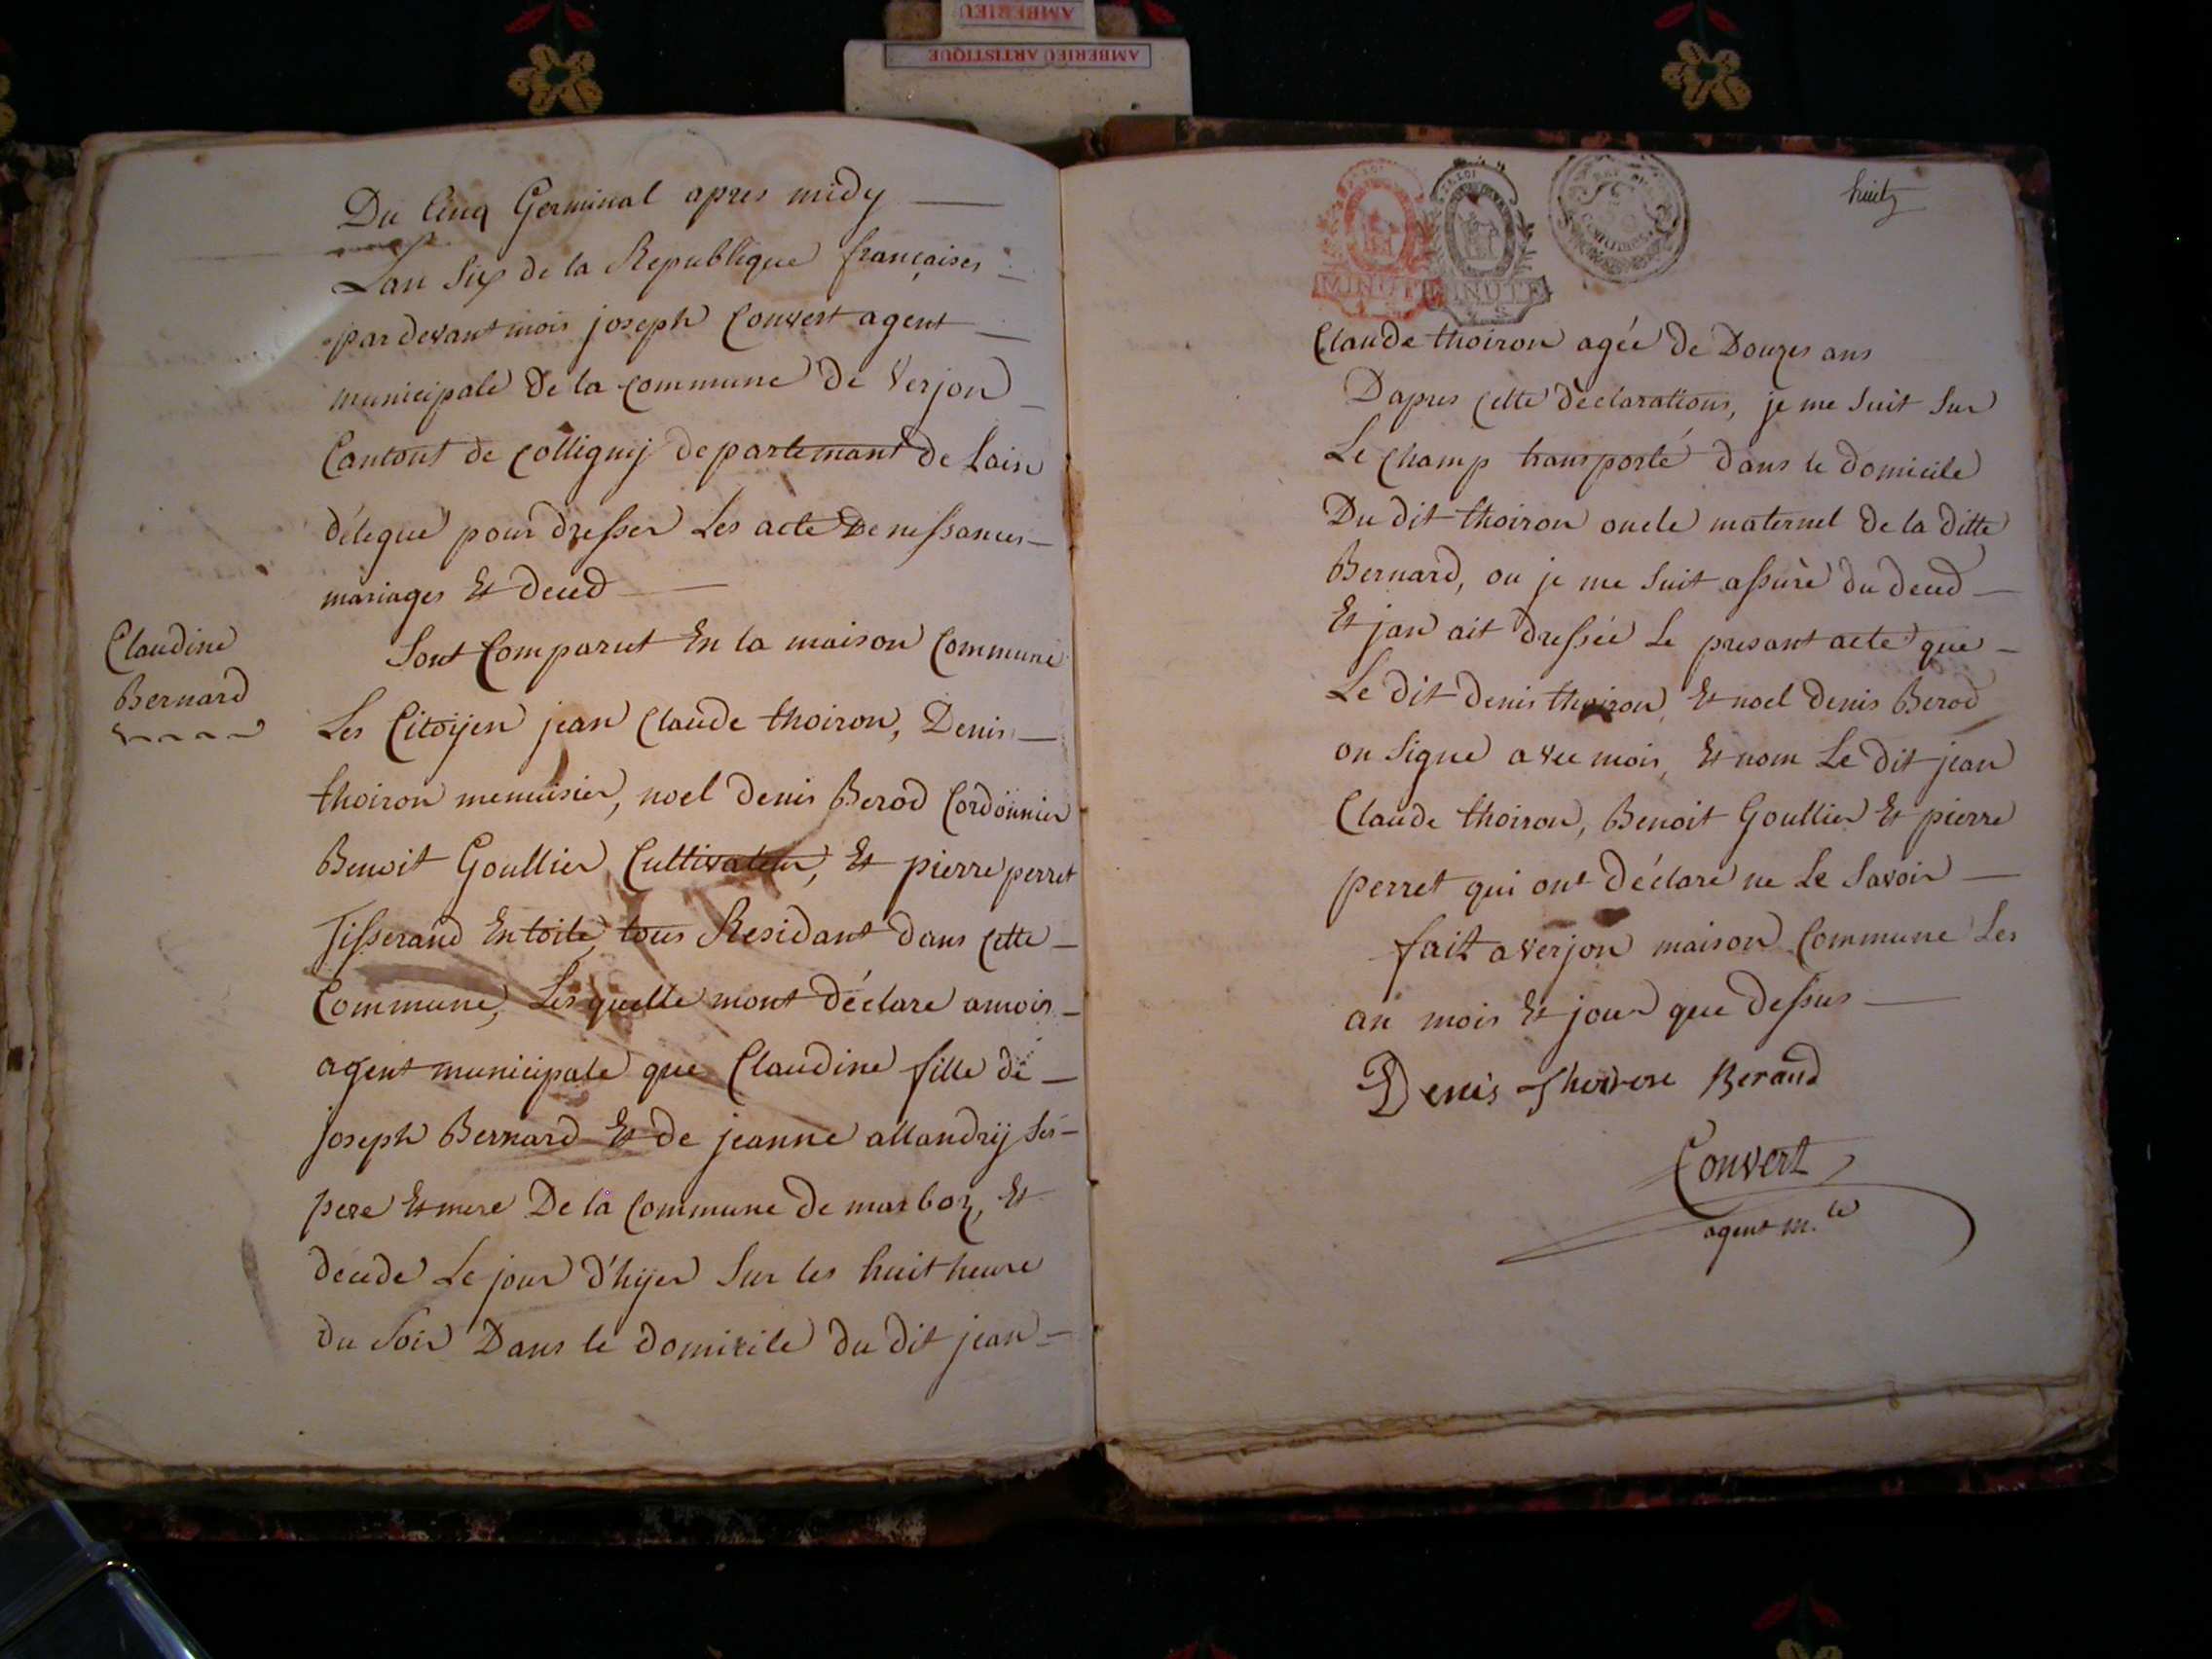 AMBERIEU
AMBERIEU ARTISTIQUE
Du Cinq Germinal apres midy
Lan Six de la Republique françaises
pardevant mois joseph Convert agent
municipale De la commune de Verjon
Cantont de Collignij departemant de Lain
délegué pour dresser Les acte De nessances
mariages Et deced
Claudine
Bernard
Sont Comparut En la maison Commune
Les Citoijen jean Claude thoiron, Denis
thoiron menuisier, noel denis Berod Cordonnier
Benoit Goullier Cultivateur, Et pierre perret
Tisserand En toile, tous Residant dans cette
Commune, Lesquelle mont déclare amois
agent municipale que Claudine fille de
joseph Bernard Et de jeanne allandrij Ses
pere Et mere De la Commune de marboz, Et
decede Le jour d'hijer Sur les huit heure
du Soir Dans le domicile du dit jean
huit
MINUTE
MINUTE
Claude thoiron agée de Douzes ans
Dapres Cette déclarations, je me Suit Sur
Le Champ transporté dans le domicile
Du dit thoiron oncle maternel de la ditte
Bernard, ou je me Suit assuré du deced
Et jan ait dressée Le presant acte que
Le dit denis thoiron, Et noel denis Berod
on Signe avec mois, Et nom Le dit jean
Claude thoiron, Benoit Goullier Et pierre
perret qui ont déclaré ne Le Savoir
fait a verjon maison Commune Les
an mois Et jour que dessus
Denis Beraud
Convert
agent m.le